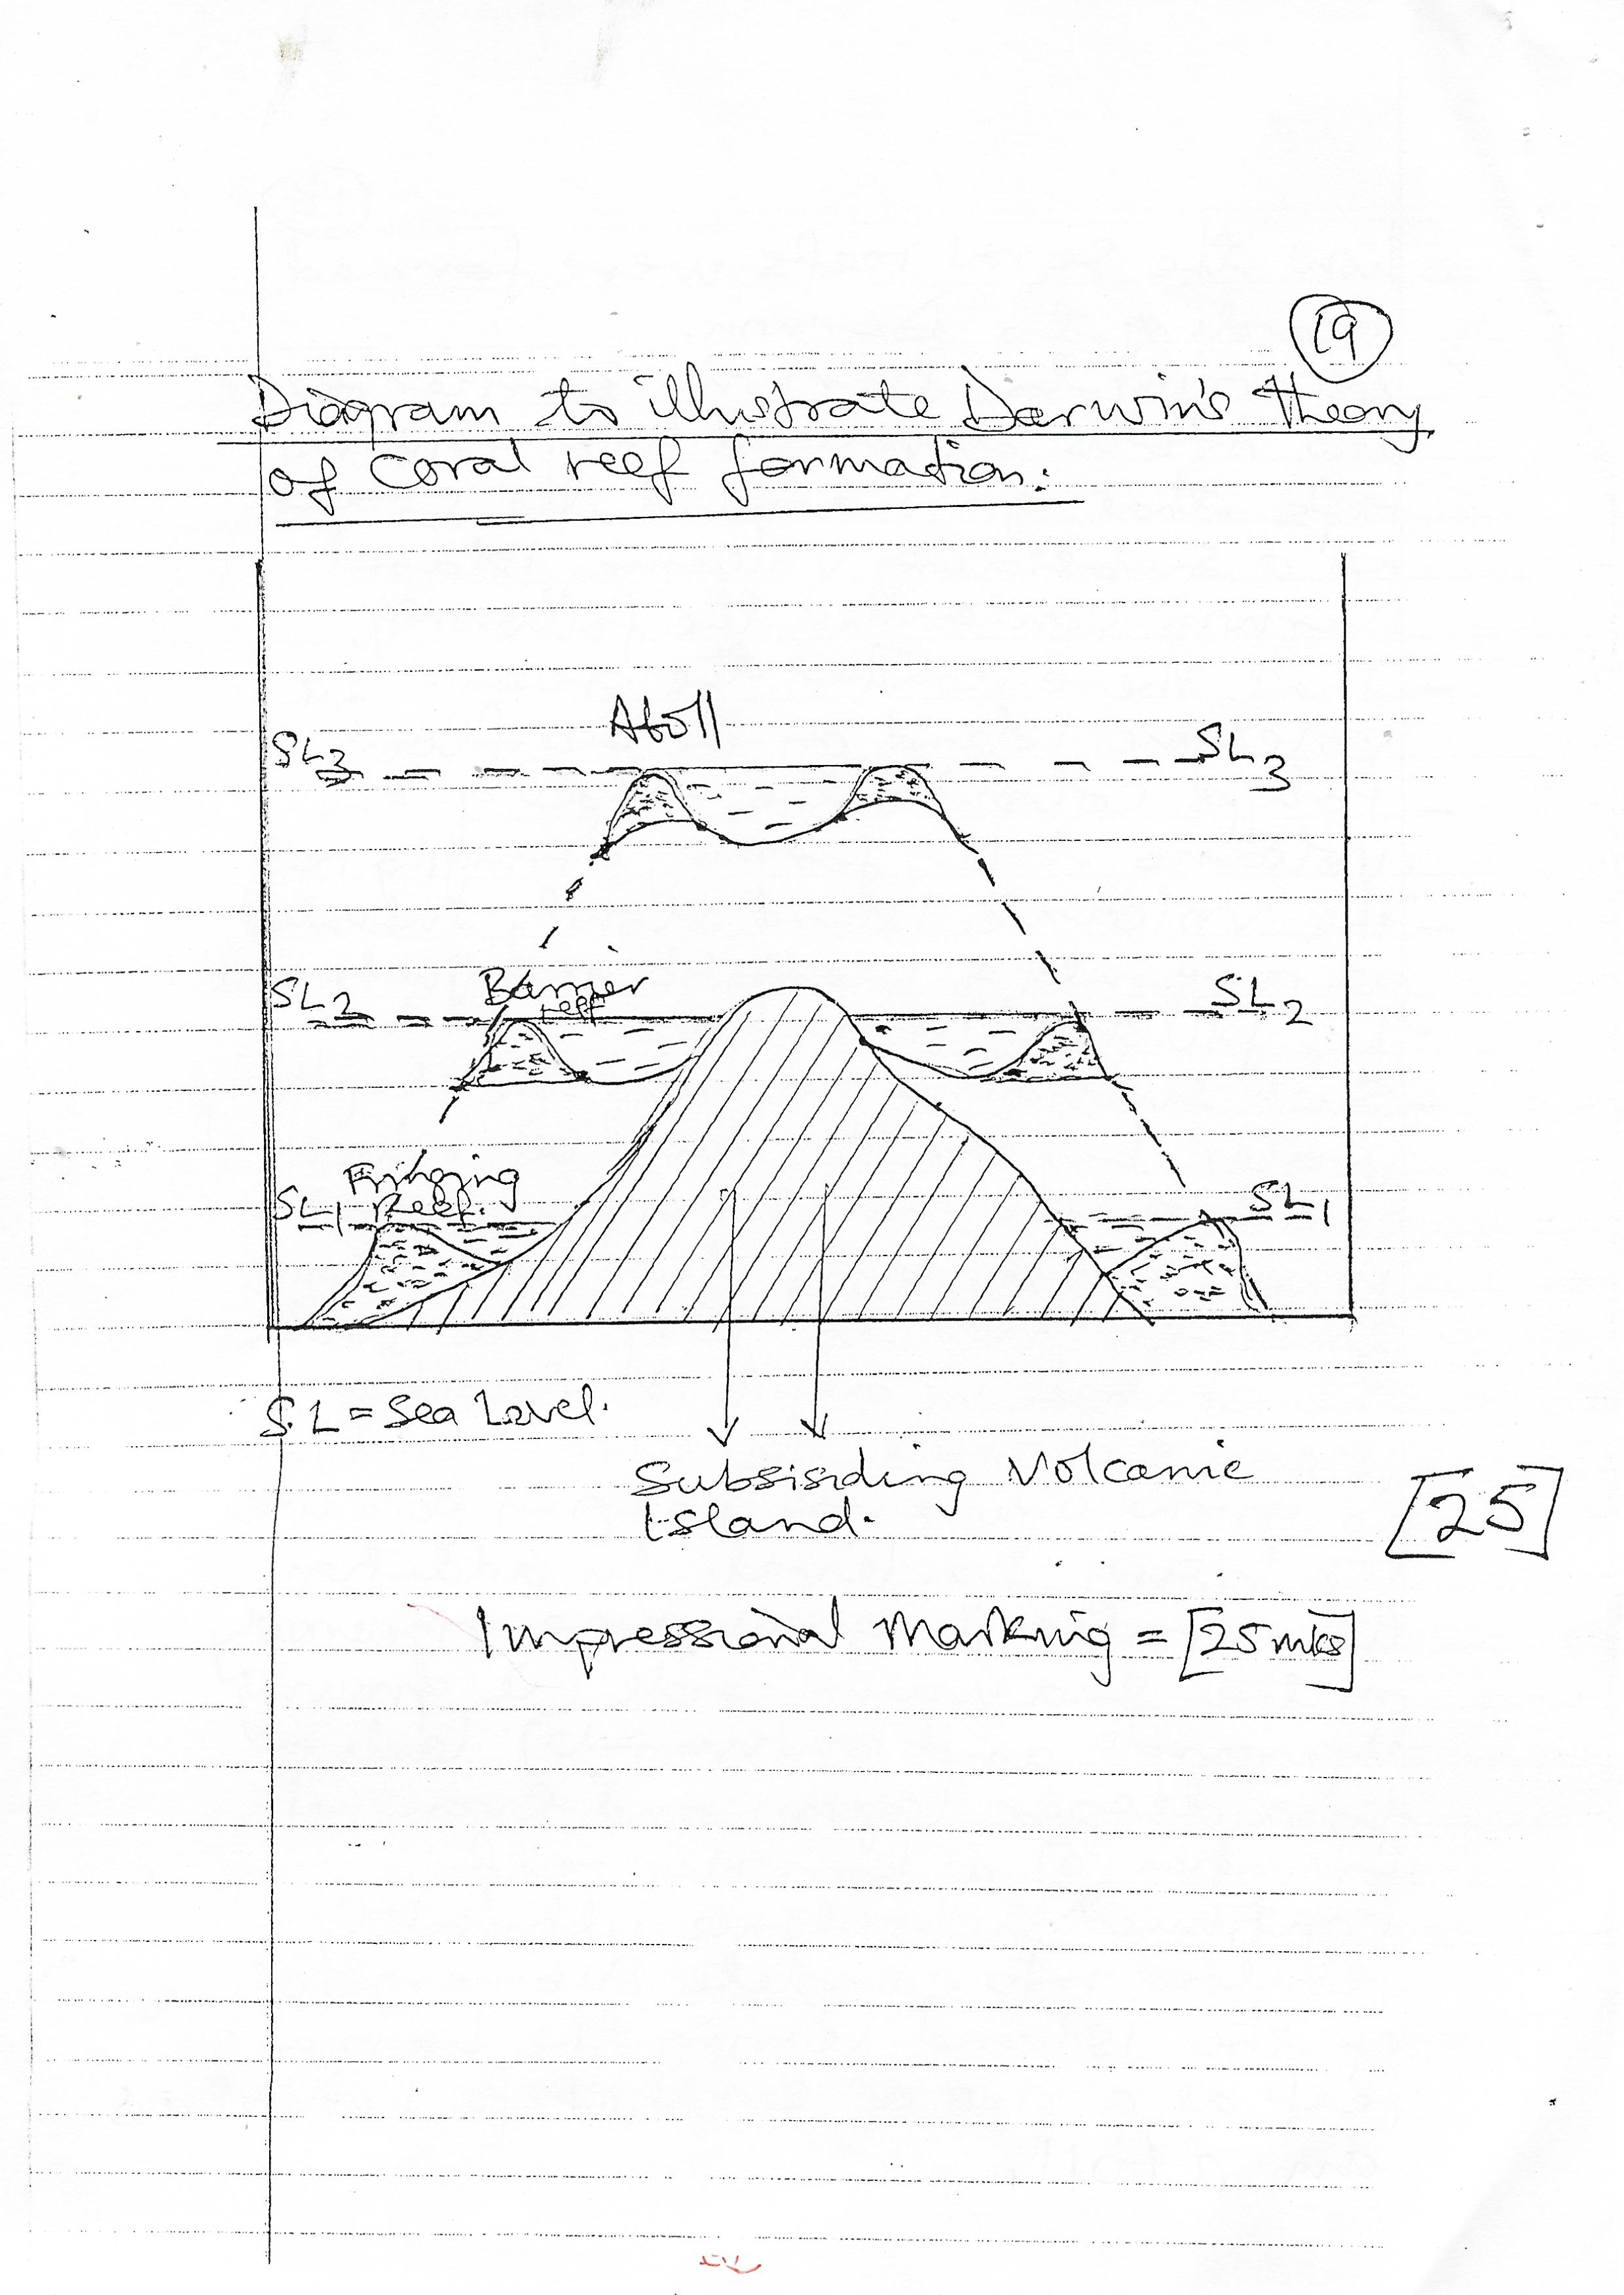 19
Diagram to illustrate Darwin's theory
of coral reef formation:
Atoll
SL3 SL3
Barrier
reef
SL2 SL2
Fringing
Reef.
SL1 SL1
S.L = Sea Level.
Subsisiding Volcanic
Island.
[25]
Impressional Marking = [25mks]